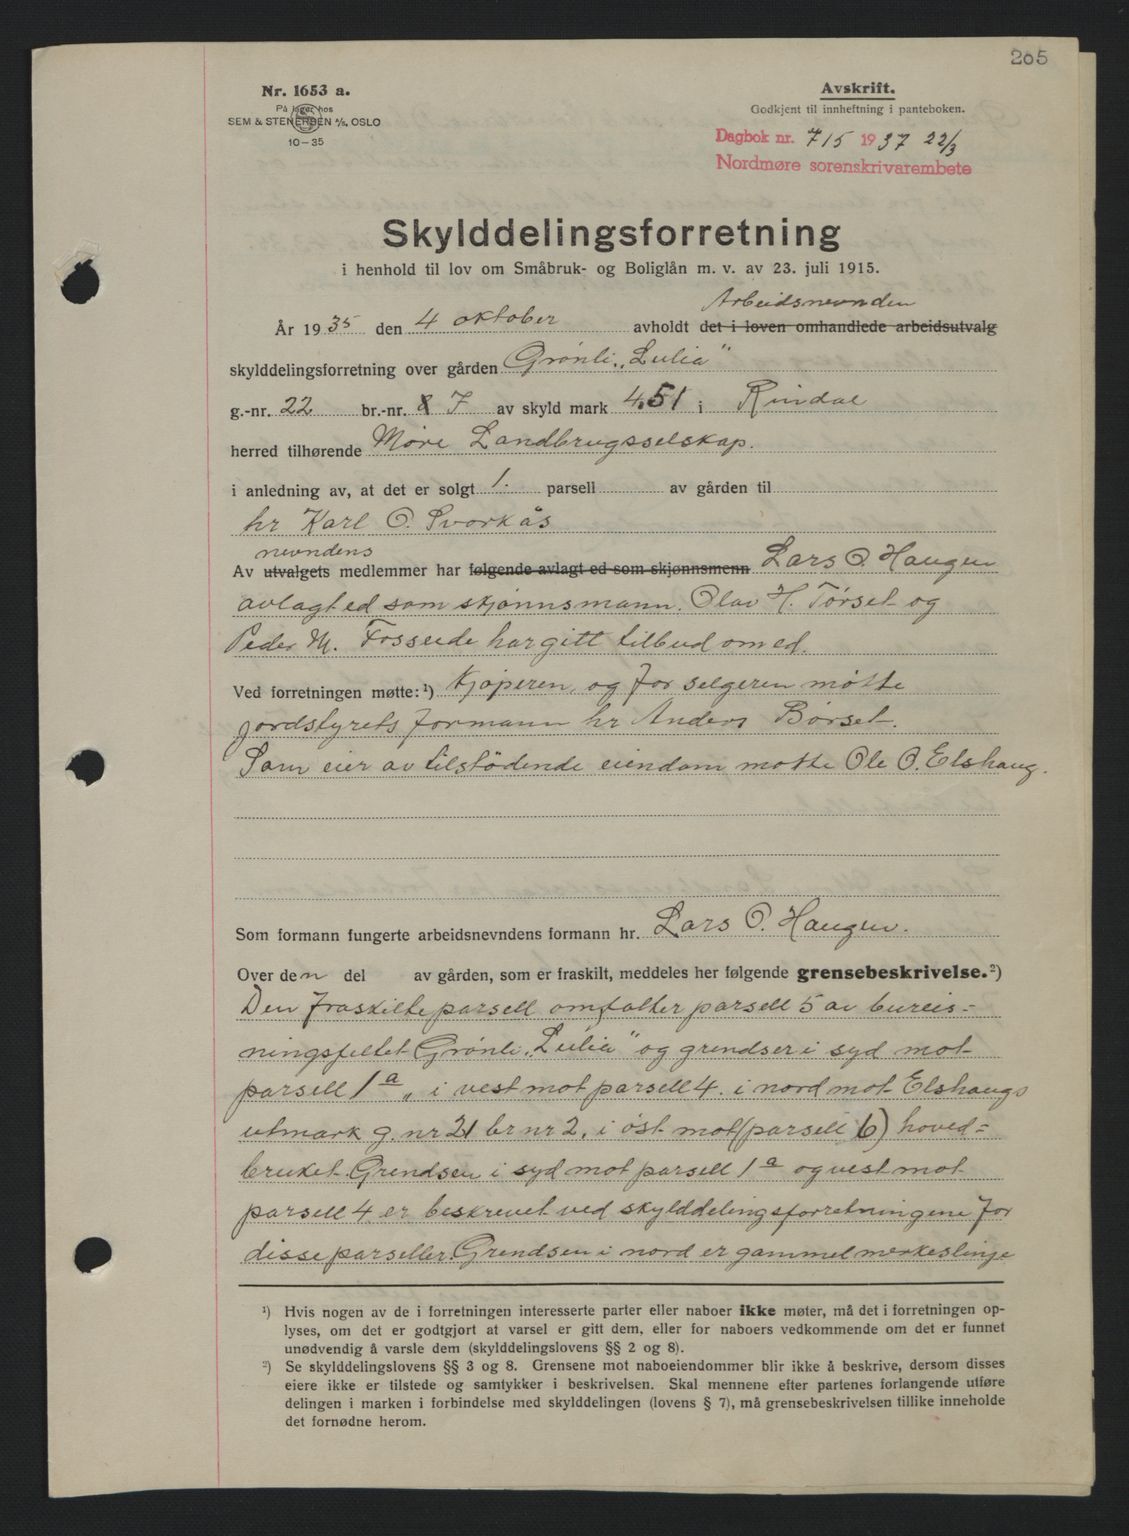 205
Nr. 1653 a.
På lager hos
SEM & STENERSEN A/S, OSLO
10-35
Avskrift.
Godkjent til innheftning i panteboken.
Dagbok nr. 715 1937 22/3
Nordmøre sorenskrivarembete
Skylddelingsforretning
i henhold til lov om Småbruk- og Boliglån m. v. av 23. juli 1915.
Arbeidsnevnden
År 1935 den 4 oktober avholdt det i loven omhandlede arbeidsutvalg
skylddelingsforretning over gården Grønli „Lulia"
g.-nr. 22 br.-nr. 8 7 av skyld mark 4,51 i Rindal
herred tilhørende Møre Landbrugsselskap.
i anledning av, at det er solgt 1. parsell av gården til
hr Karl O. Svorkås
nevndens
Av utvalgets medlemmer har følgende avlagt ed som skjønnsmenn Lars O. Haugen
avlagt ed som skjønnsmann. Olav H. Tørset og
Peder M. Fosseide har gitt tilbud om ed.
Ved forretningen møtte:¹) Kjøperen, og for selgeren møtte
jordstyrets formann hr Anders Børset.
Som eier av tilstødende eiendom møtte Ole O. Elshaug.
Som formann fungerte arbeidsnevndens formann hr. Lars O. Haugen.
Over den del av gården, som er fraskilt, meddeles her følgende grensebeskrivelse.²)
Den fraskilte parsell omfatter parsell 5 av bureis-
ningsfeltet Grønli „Lulia" og grendser i syd mot
parsell 1a „ i vest mot parsell 4. i nord mot Elshaugs
utmark g. nr 21 br nr 2, i øst mot (parsell 6) hoved=
bruket. Grendsen i syd mot parsell 1a og vest mot
parsell 4 er beskrevet ved skylddelingsforretningene for
disse parseller. Grendsen i nord er gammel merkeslinje
¹) Hvis nogen av de i forretningen interesserte parter eller naboer ikke møter, må det i forretningen op-
lyses, om det er godtgjort at varsel er gitt dem, eller for naboers vedkommende om det er funnet
unødvendig å varsle dem (skylddelingslovens §§ 2 og 8).
²) Se skylddelingslovens §§ 3 og 8. Grensene mot naboeiendommer blir ikke å beskrive, dersom disses
eiere ikke er tilstede og samtykker i beskrivelsen. Skal mennene efter partenes forlangende utføre
delingen i marken i forbindelse med skylddelingen (lovens § 7), må grensebeskrivelsen tillike inneholde
det fornødne herom.